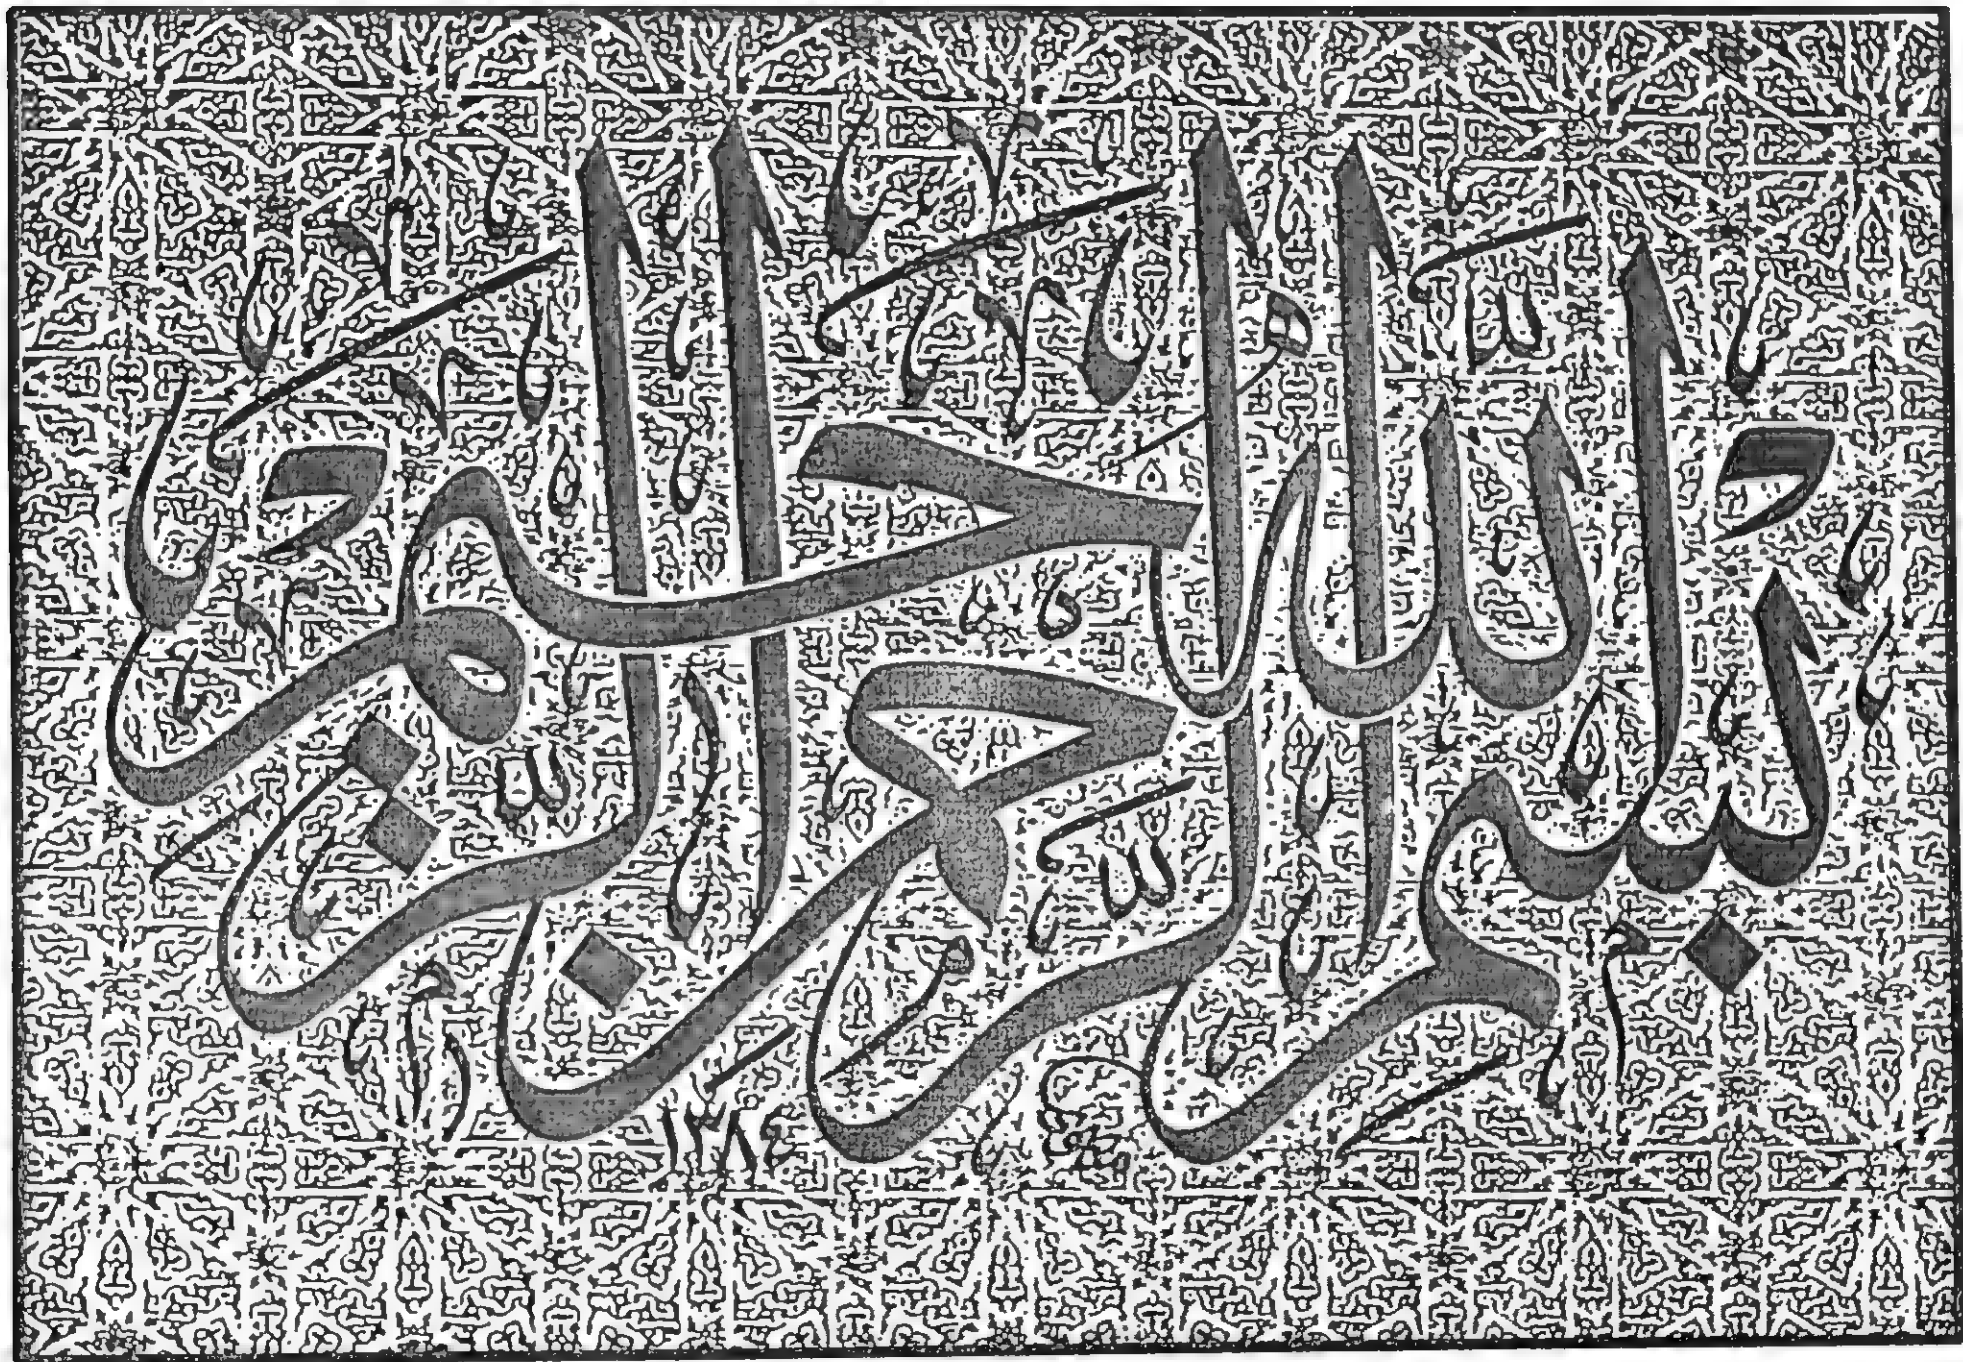 بسم الله الرحمن الرحيم
١٣٨٤